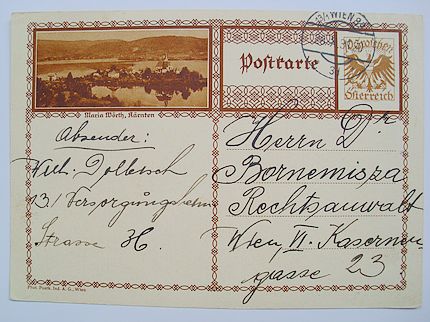 Maria Wörth, Kärnten
Postkarte
WIEN
10 Groschen
Österreich
Absender:
13/ Versorgungsheim
Strasse 36.
Herrn Dr
Bornemisza
Rechtsanwalt
Wien, VI. Kasernen
gasse 23
Phot. Postk. Ind. A. G., Wien